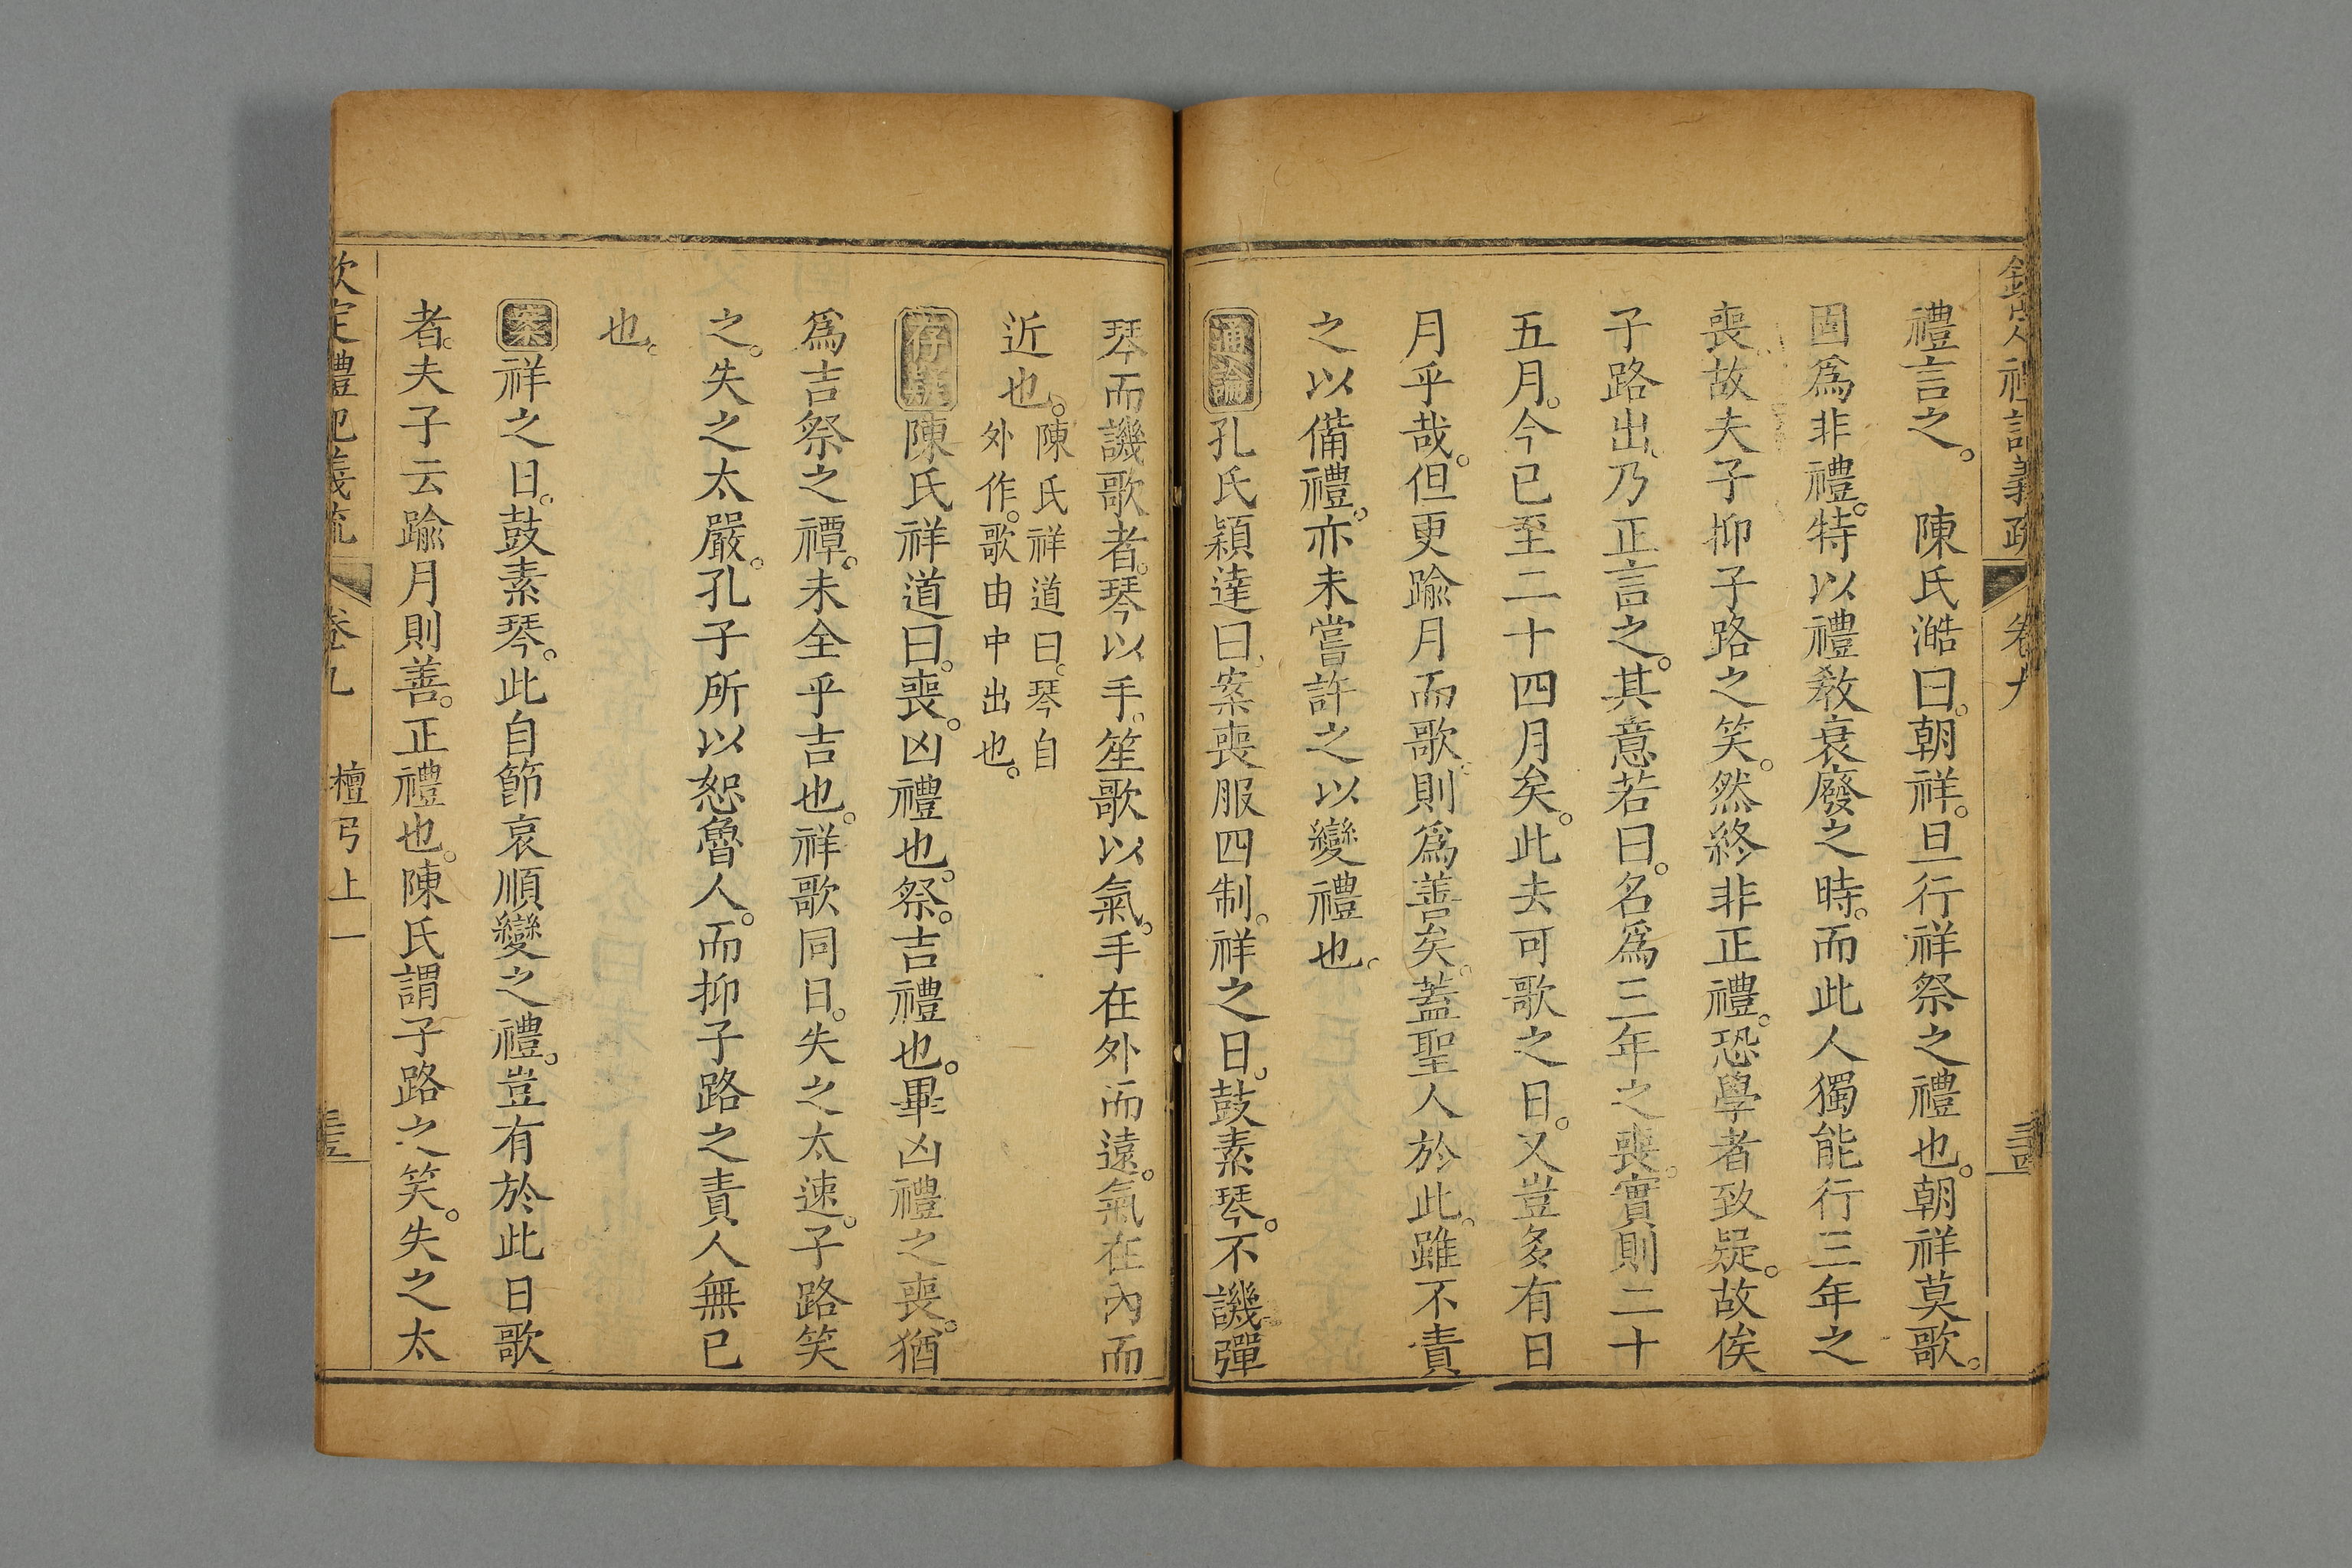 禮記義疏 卷九
禮言之。 陳氏澔曰。朝祥。旦行祥祭之禮也。朝祥莫歌。
固爲非禮。特以禮敎衰廢之時。而此人獨能行三年之
喪。故夫子抑子路之笑。然終非正禮。恐學者致疑。故俟
子路出。乃正言之。其意若曰。名爲三年之喪。實則二十
五月。今已至二十四月矣。此去可歌之日。又豈多有日
月乎哉。但更踰月而歌。則爲善矣。蓋聖人於此。雖不責
之以備禮。亦未嘗許之以變禮也。
通論孔氏穎達曰。案喪服四制。祥之日。鼓素琴。不譏彈
琴而譏歌者。琴以手。笙歌以氣。手在外而遠。氣在內而
近也。陳氏祥道曰。琴自
外作。歌由中出也。
存疑陳氏祥道曰。喪。凶禮也。祭。吉禮也。畢凶禮之喪。猶
爲吉祭之禫。未全乎吉也。祥歌同日。失之太速。子路笑
之。失之太嚴。孔子所以恕魯人。而抑子路之責人無已
也。
案祥之日。鼓素琴。此自節哀順變之禮。豈有於此日歌
者。夫子云踰月則善。正禮也。陳氏謂子路之笑。失之太
欽定禮記義疏 卷九 檀弓上一